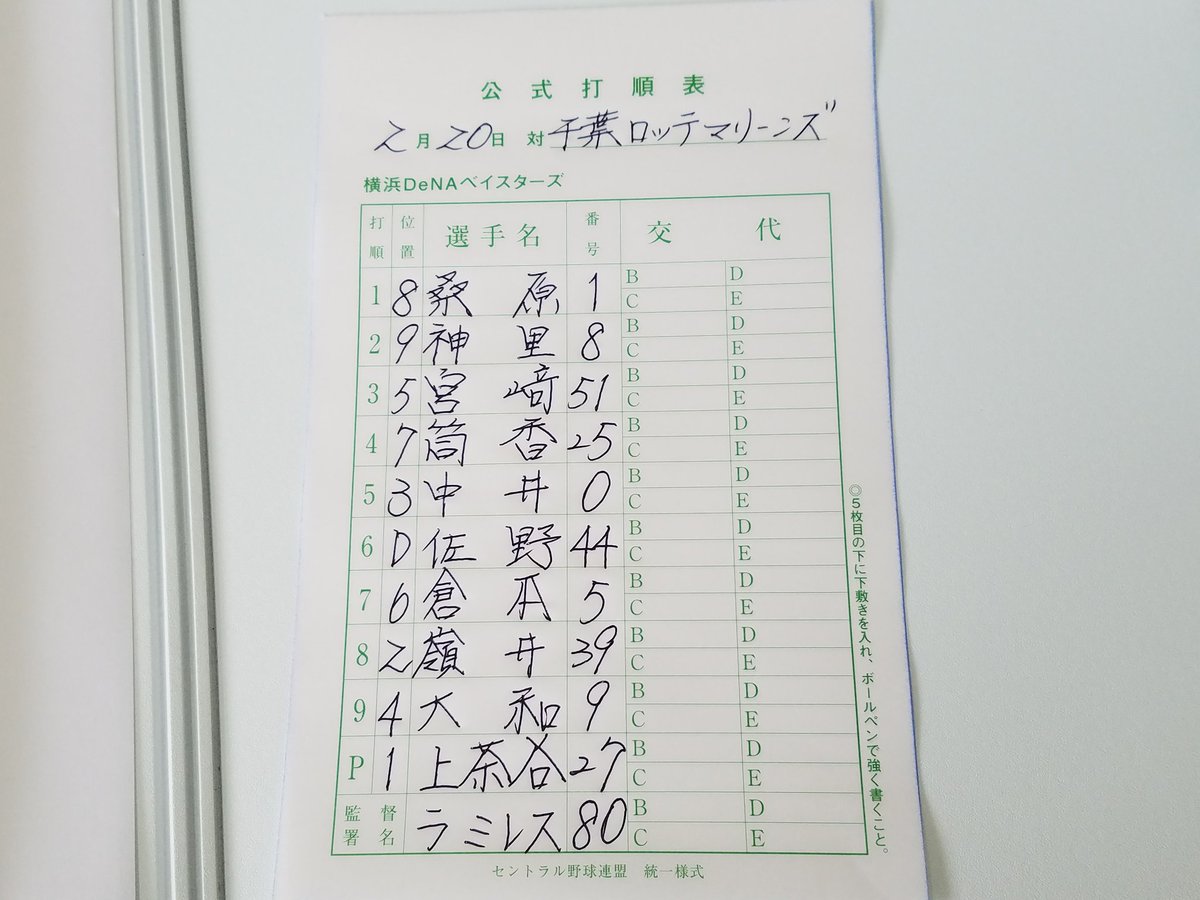 公式打順表
2月20日 対 千葉ロッテマリーンズ
横浜DeNAベイスターズ
打順 位置 選手名 番号 交代
1 8 桑原 1 B D
C E
2 9 神里 8 B D
C E
3 5 宮﨑 51 B D
C E
4 7 筒香 25 B D
C E
5 3 中井 0 B D
C E
6 D 佐野 44 B D
C E
7 6 倉本 5 B D
C E
8 2 嶺井 39 B D
C E
9 4 大和 9 B D
C E
P 1 上茶谷 27 B D
C E
監督署名 ラミレス 80 B D
C E
◎5枚目の下に下敷きを入れ、ボールペンで強く書くこと。
セントラル野球連盟 統一様式